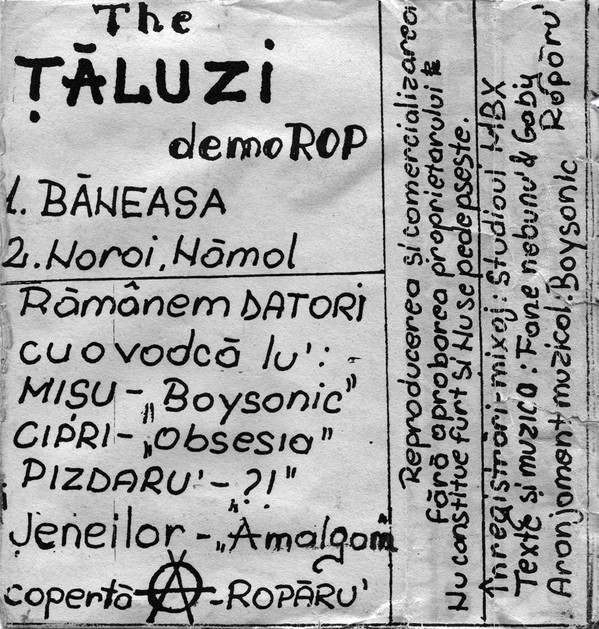 The
ȚĂLUZI
demoROP
1. BĂNEASA
2. Noroi, Nămol
Rămânem DATORI
cu o vodcă lu':
MIȘU - „Boysonic"
CIPRI - „Obsesia"
PIZDARU' - „?!"
Jeneilor - „Amalgam"
copertă Ⓐ - ROPĂRU'
Reproducerea și comercializarea
fără aprobarea proprietarului
Nu constitue furt și Nu se pedepsește.
Înregistrări-mixaj: Studioul MBX
Texte și muzica: Fane nebunu' & Gaby
Aranjament muzical: Boysonic Ropăru'